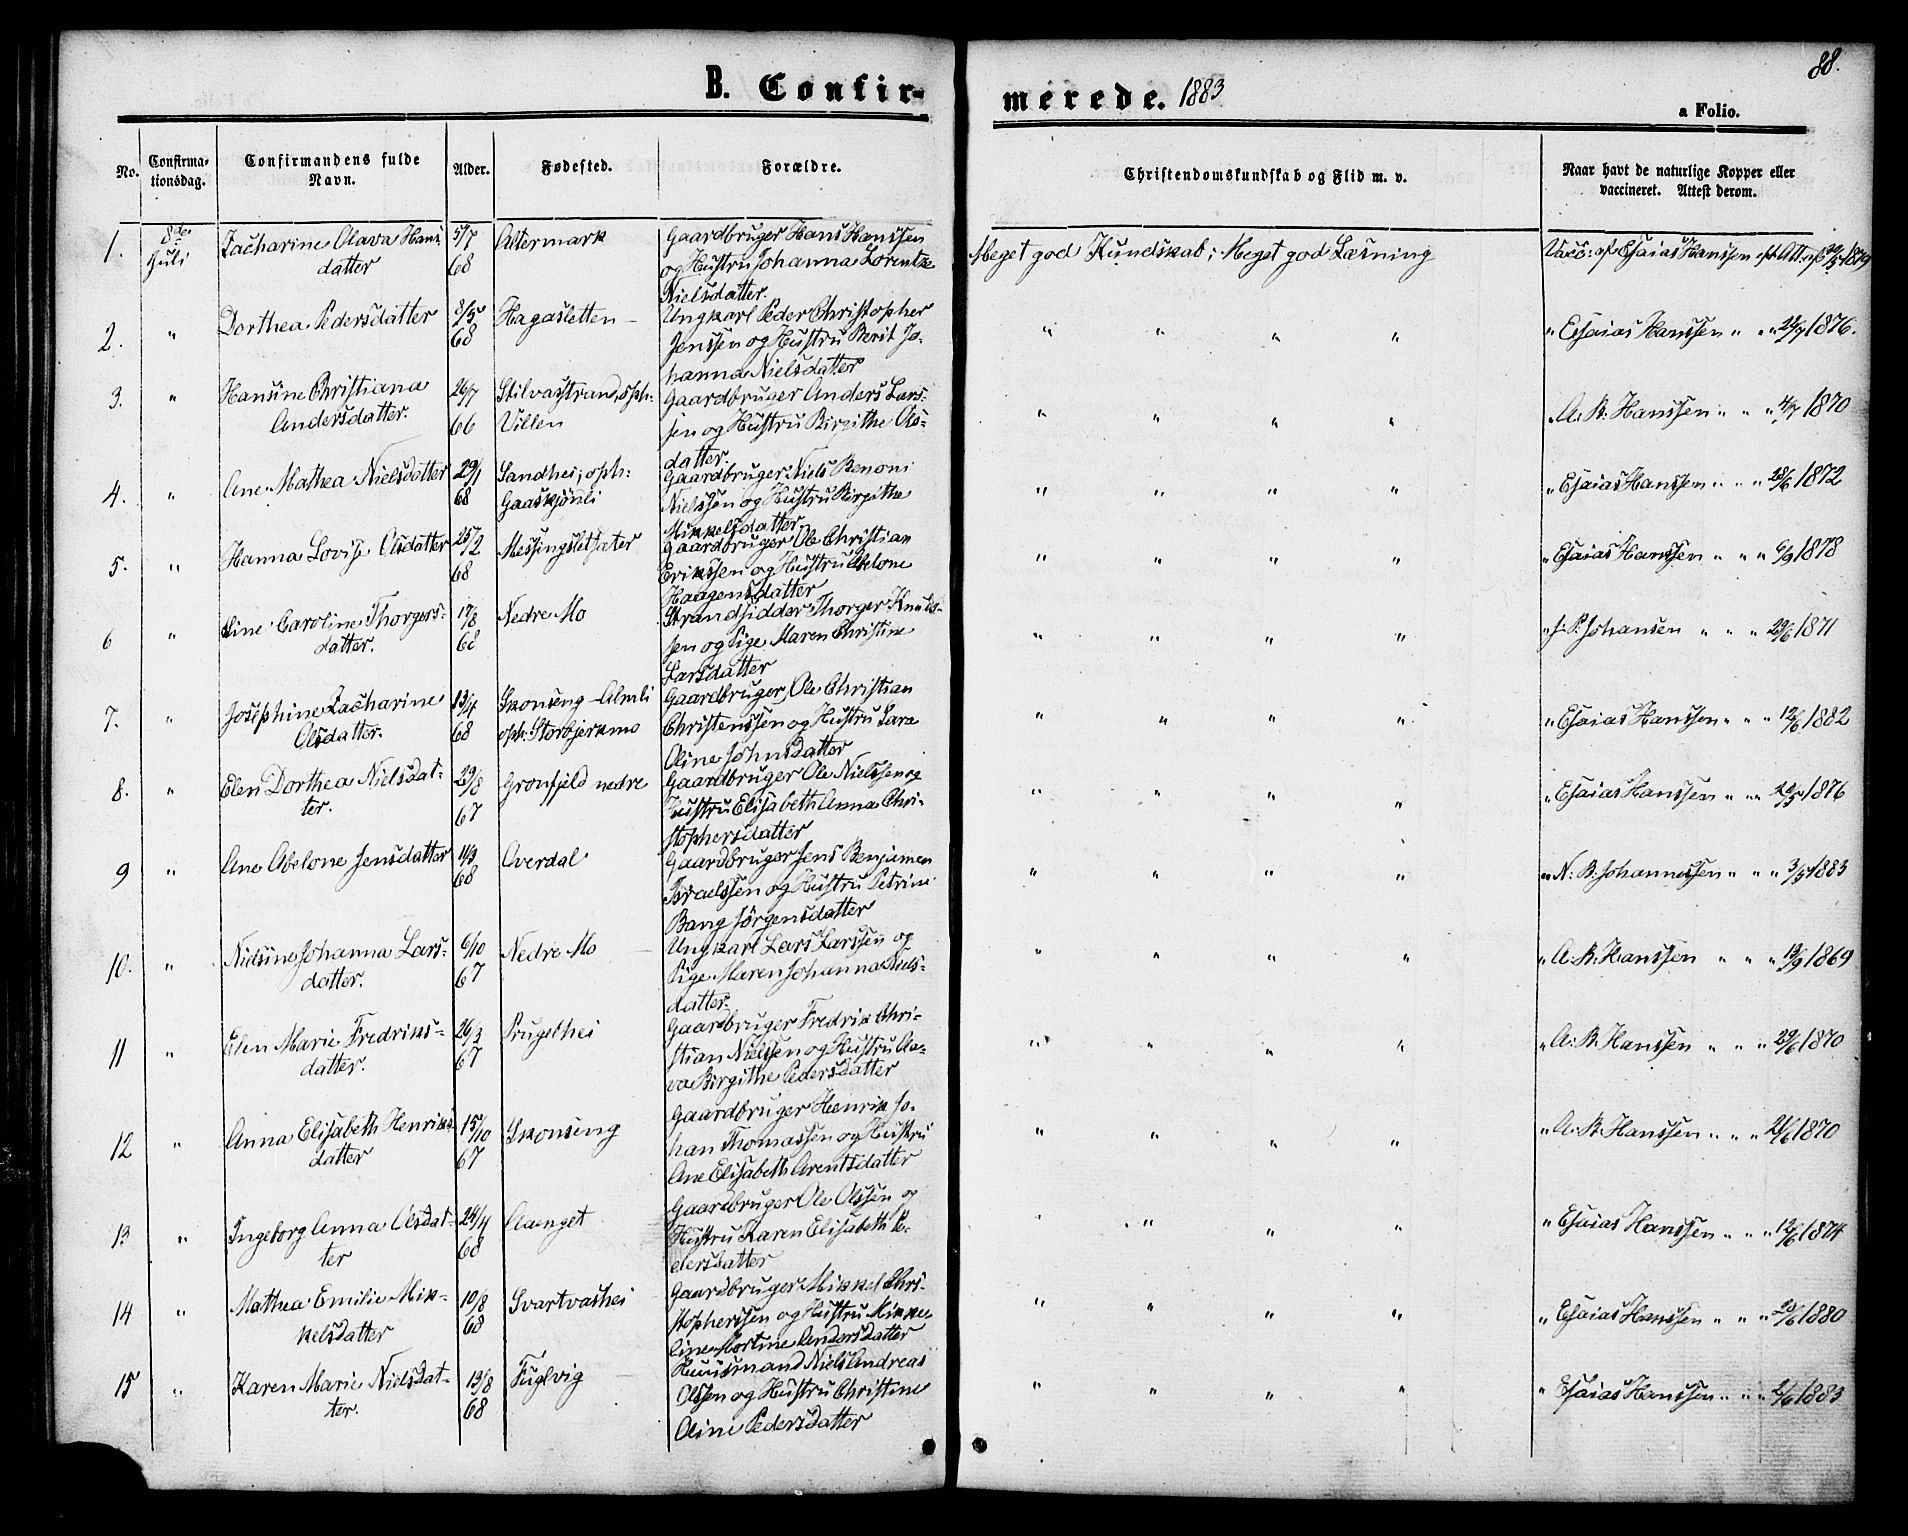 88.
B. Confir-
merede. 1883
a Folio.
No.
Confirma-
tionsdag.
Confirmandens fulde
Navn.
Alder.
Fødested.
Forældre.
Christendomskundskab og Flid m. v.
Naar havt de naturlige Kopper eller
vaccineret. Attest derom.
1. 8de Juli
Zacharine Olava Hans-
datter
5/7 68
Altermark
Gaardbruger Hans Hanssen
og Hustru Johanna Lorentze
Nielsdatter.
Meget god Kundskab; Meget god Læsning
Vacc: af Esaias Hanssen 1879
2. "
Dorthea Pedersdatter
8/5 68
Hagasletten
Ungkarl Peder Christopher
Jenssen og Hustru Berit Jo-
hanna Nielsdatter
" " " "
" Esaias Hanssen " " " 1876.
3. "
Hansine Christiana
Andersdatter.
26/7 66
Stilvasstrand, oph:
Villen
Gaardbruger Anders Lars-
sen og Hustru Birgithe Ols-
datter.
" " " "
A. B. Hanssen " " " 4/7 1870
4. "
Ane Mathea Nielsdatter
29/1 68
Sandhei, oph:
Gaaskjönli
Gaardbruger Niels Benoni
Nielssen og Hustru Birgithe
Mikkelsdatter
" " " "
" Esaias Hanssen " " " 28/6 1872
5. "
Hanna Lovise Olsdatter
25/2 68
Messingsletsater
Gaardbruger Ole Christian
Erikssen og Hustru Abelone
Haagensdatter
" " " "
" Esaias Hanssen " " " 6/9 1878
6 "
Line Caroline Thorgers-
datter.
17/8 68
Nedre Mo
Strandsidder Thorger Knuds-
sen og Pige Maren Christine
Larsdatter
" " " "
" J. P. Johansen " " " 29/6 1871
7. "
Josephine Zacharine
Olsdatter.
13/4 68
Skonseng-Almli
oph: Storbjerkmo
Gaardbruger Ole Christian
Christenssen og Hustru Sara
Oline Johnsdatter
" " " "
" Esaias Hanssen " " " 12/6 1882
8. "
Elen Dorthea Nielsdat-
ter.
29/8 67
Grønfjeld nedre
Gaardbruger Ole Nielssen og
Hustru Elisabeth Anna Chri-
stophersdatter
" " " "
" Esaias Hanssen " " " 1876
9 "
Ane Abelone Jensdatter
11/3 68
Overdal
Gaardbruger Jens Benjamen
Israelssen og Hustru Petrine
Bang Jörgensdatter
" " " "
" N: B. Johannessen " " " 3/5 1883
10. "
Nielsine Johanna Lars-
datter.
6/10 67
Nedre Mo
Ungkarl Lars Larssen og
Pige Maren Johanna Niels-
datter.
" " " "
" A. B. Hanssen " " " 13/9 1869
11 "
Elen Marie Fredriks-
datter.
26/3 67
Prugelhei
Gaardbruger Fredrik Chri-
stian Nielssen og Hustru Ola-
va Birgithe Pedersdatter
" " " "
" A. B. Hanssen " " " 29/6 1870
12 "
Anna Elisabeth Henriks
datter
15/10 67
Skonseng
Gaardbruger Henrik Jo-
han Thomassen og Hustru
Ane Elisabeth Arentsdatter
" " " "
" A. B. Hanssen " " " 21/6 1870
13 "
Ingeborg Anna Olsdat-
ter
24/4 68
Gaardbruger Ole Olssen og
Hustru Karen Elisabeth Pe-
dersdatter
" " " "
" Esaias Hanssen " " " 12/6 1874
14 "
Mathea Emilie Mik-
kelsdatter
10/8 68
Svartvashei
Gaardbruger Mikkel Chri-
stopherssen og Hustru Mikke-
line Mortine Andersdatter
" " " "
" Esaias Hanssen " " " 1880
15 "
Karen Marie Nielsdat-
ter.
13/8 68
Fuglvig
Huusmand Niels Andreas
Olssen og Hustru Christine
Oline Pedersdatter
" " " "
" Esaias Hanssen " " " 1883